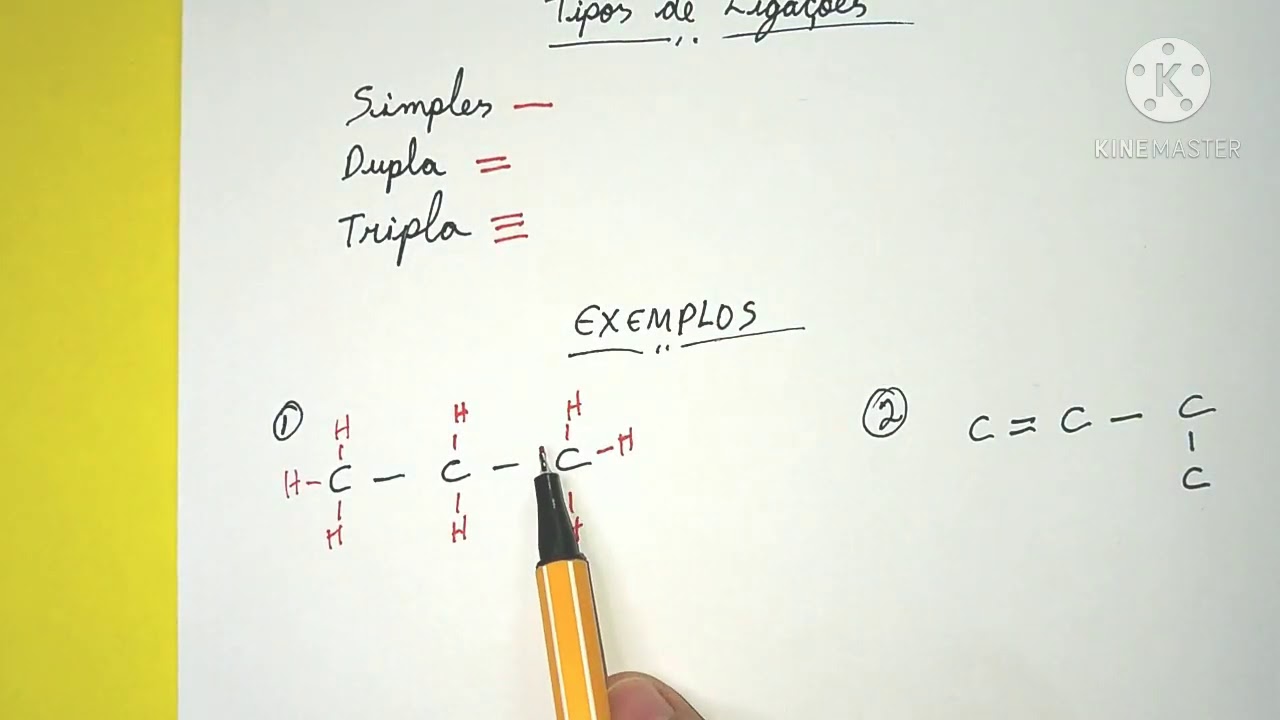 Tipos de Ligações
K
KINEMASTER
Simples —
Dupla =
Tripla ≡
EXEMPLOS
① H H H
H-C — C — C-H
H H H
② C = C — C
C